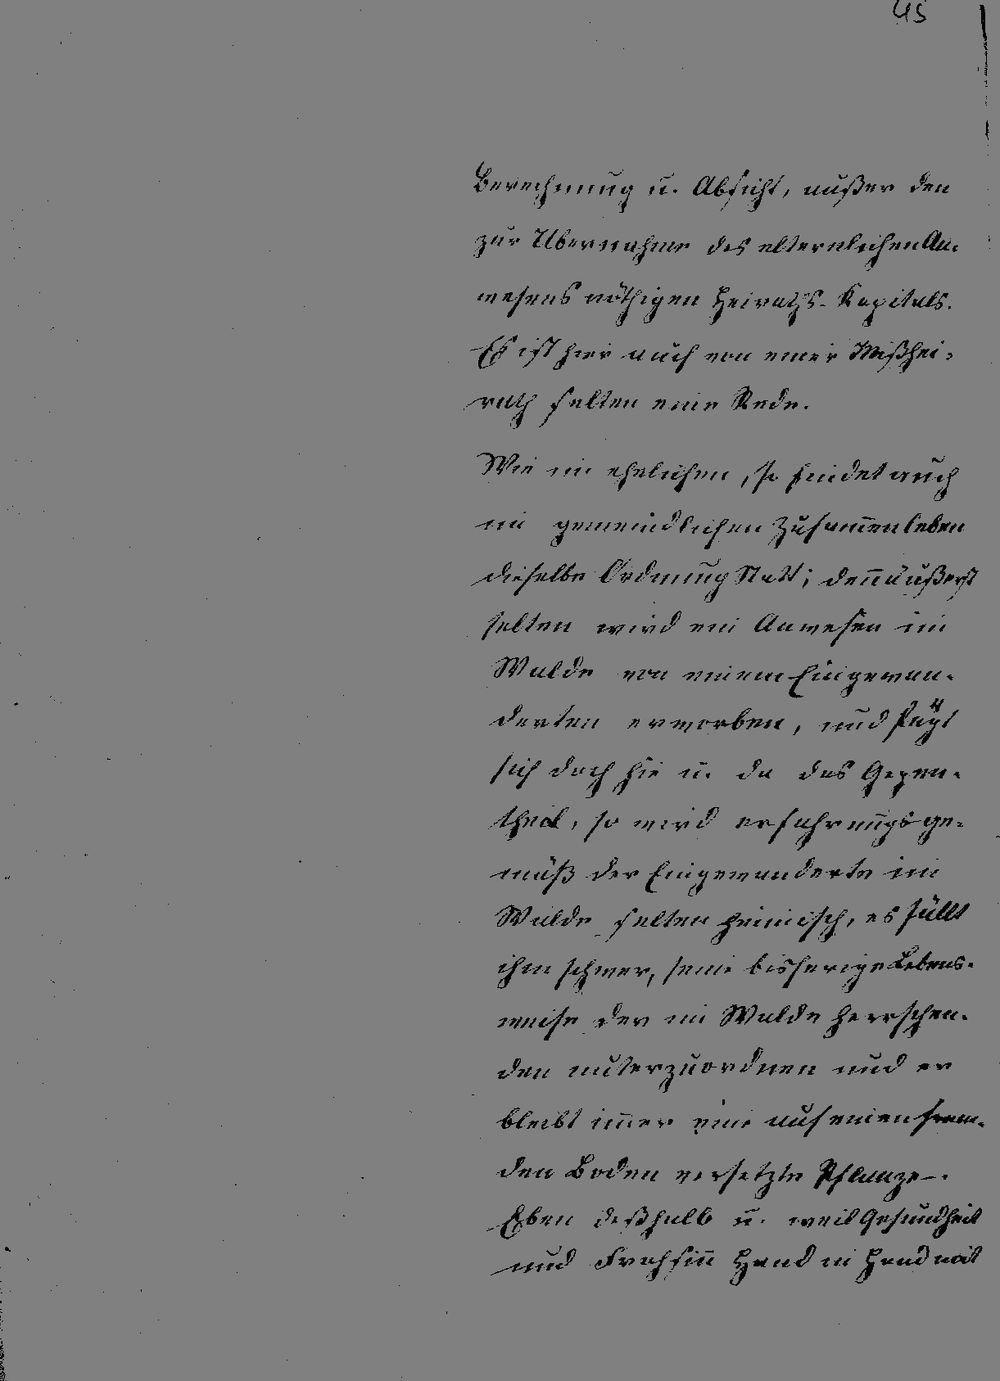 45
Berechnung u. Absicht, außer den
zur Übernahme des elterlichen An-
wesens nöthigen Heiraths-Kapitals.
Es ist hier auch von einer Mißhei-
rath selten eine Rede.
Wie im ehelichen, so findet auch
im gemeindlichen Zusam̄enleben
dieselbe Ordnung Statt; den̄ äußerst
selten wird ein Anwesen im
Walde von einem Eingewan-
derten erworben, und fügt
sich doch hie u. da das Gegen-
theil, so wird erfahrungsge-
mäß der Eingewanderte im
Walde selten heimisch, es fällt
ihm schwer, seine bisherige Lebens-
weise der im Walde herrschen-
den unterzuordnen und er
bleibt im̄er eine auf einen frem-
den Boden versetzte Pflanze.
Eben deßhalb u. weil Gesundheit
und Frohsin̄ Hand in Hand mit